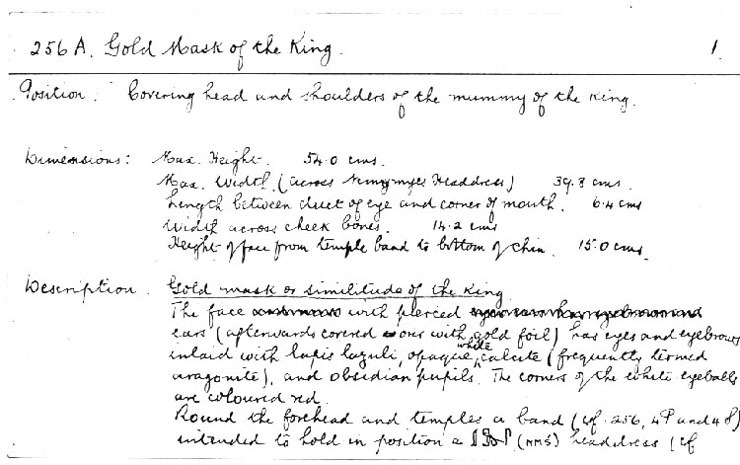 256A. Gold Mask of the King. 1.
Position. Covering head and shoulders of the mummy of the King.
Dimensions: Max. Height. 54.0 cms.
Max. Width. (across Nemes Headdress) 39.3 cms.
Length between duct of eye and corner of mouth. 6.4 cms
Width across cheek bones. 14.2 cms
Height of face from temple band to bottom of chin. 15.0 cms.
Description. Gold mask or similitude of the King
The face with pierced
ears (afterwards covered over with gold foil) has eyes and eyebrows
inlaid with lapis lazuli, opaque white calcite (frequently termed
aragonite), and obsidian pupils. The corners of the white eyeballs
are coloured red.
Round the forehead and temples a band (cf. 256, 4P and 48)
intended to hold in position a (NMS) headdress (cf